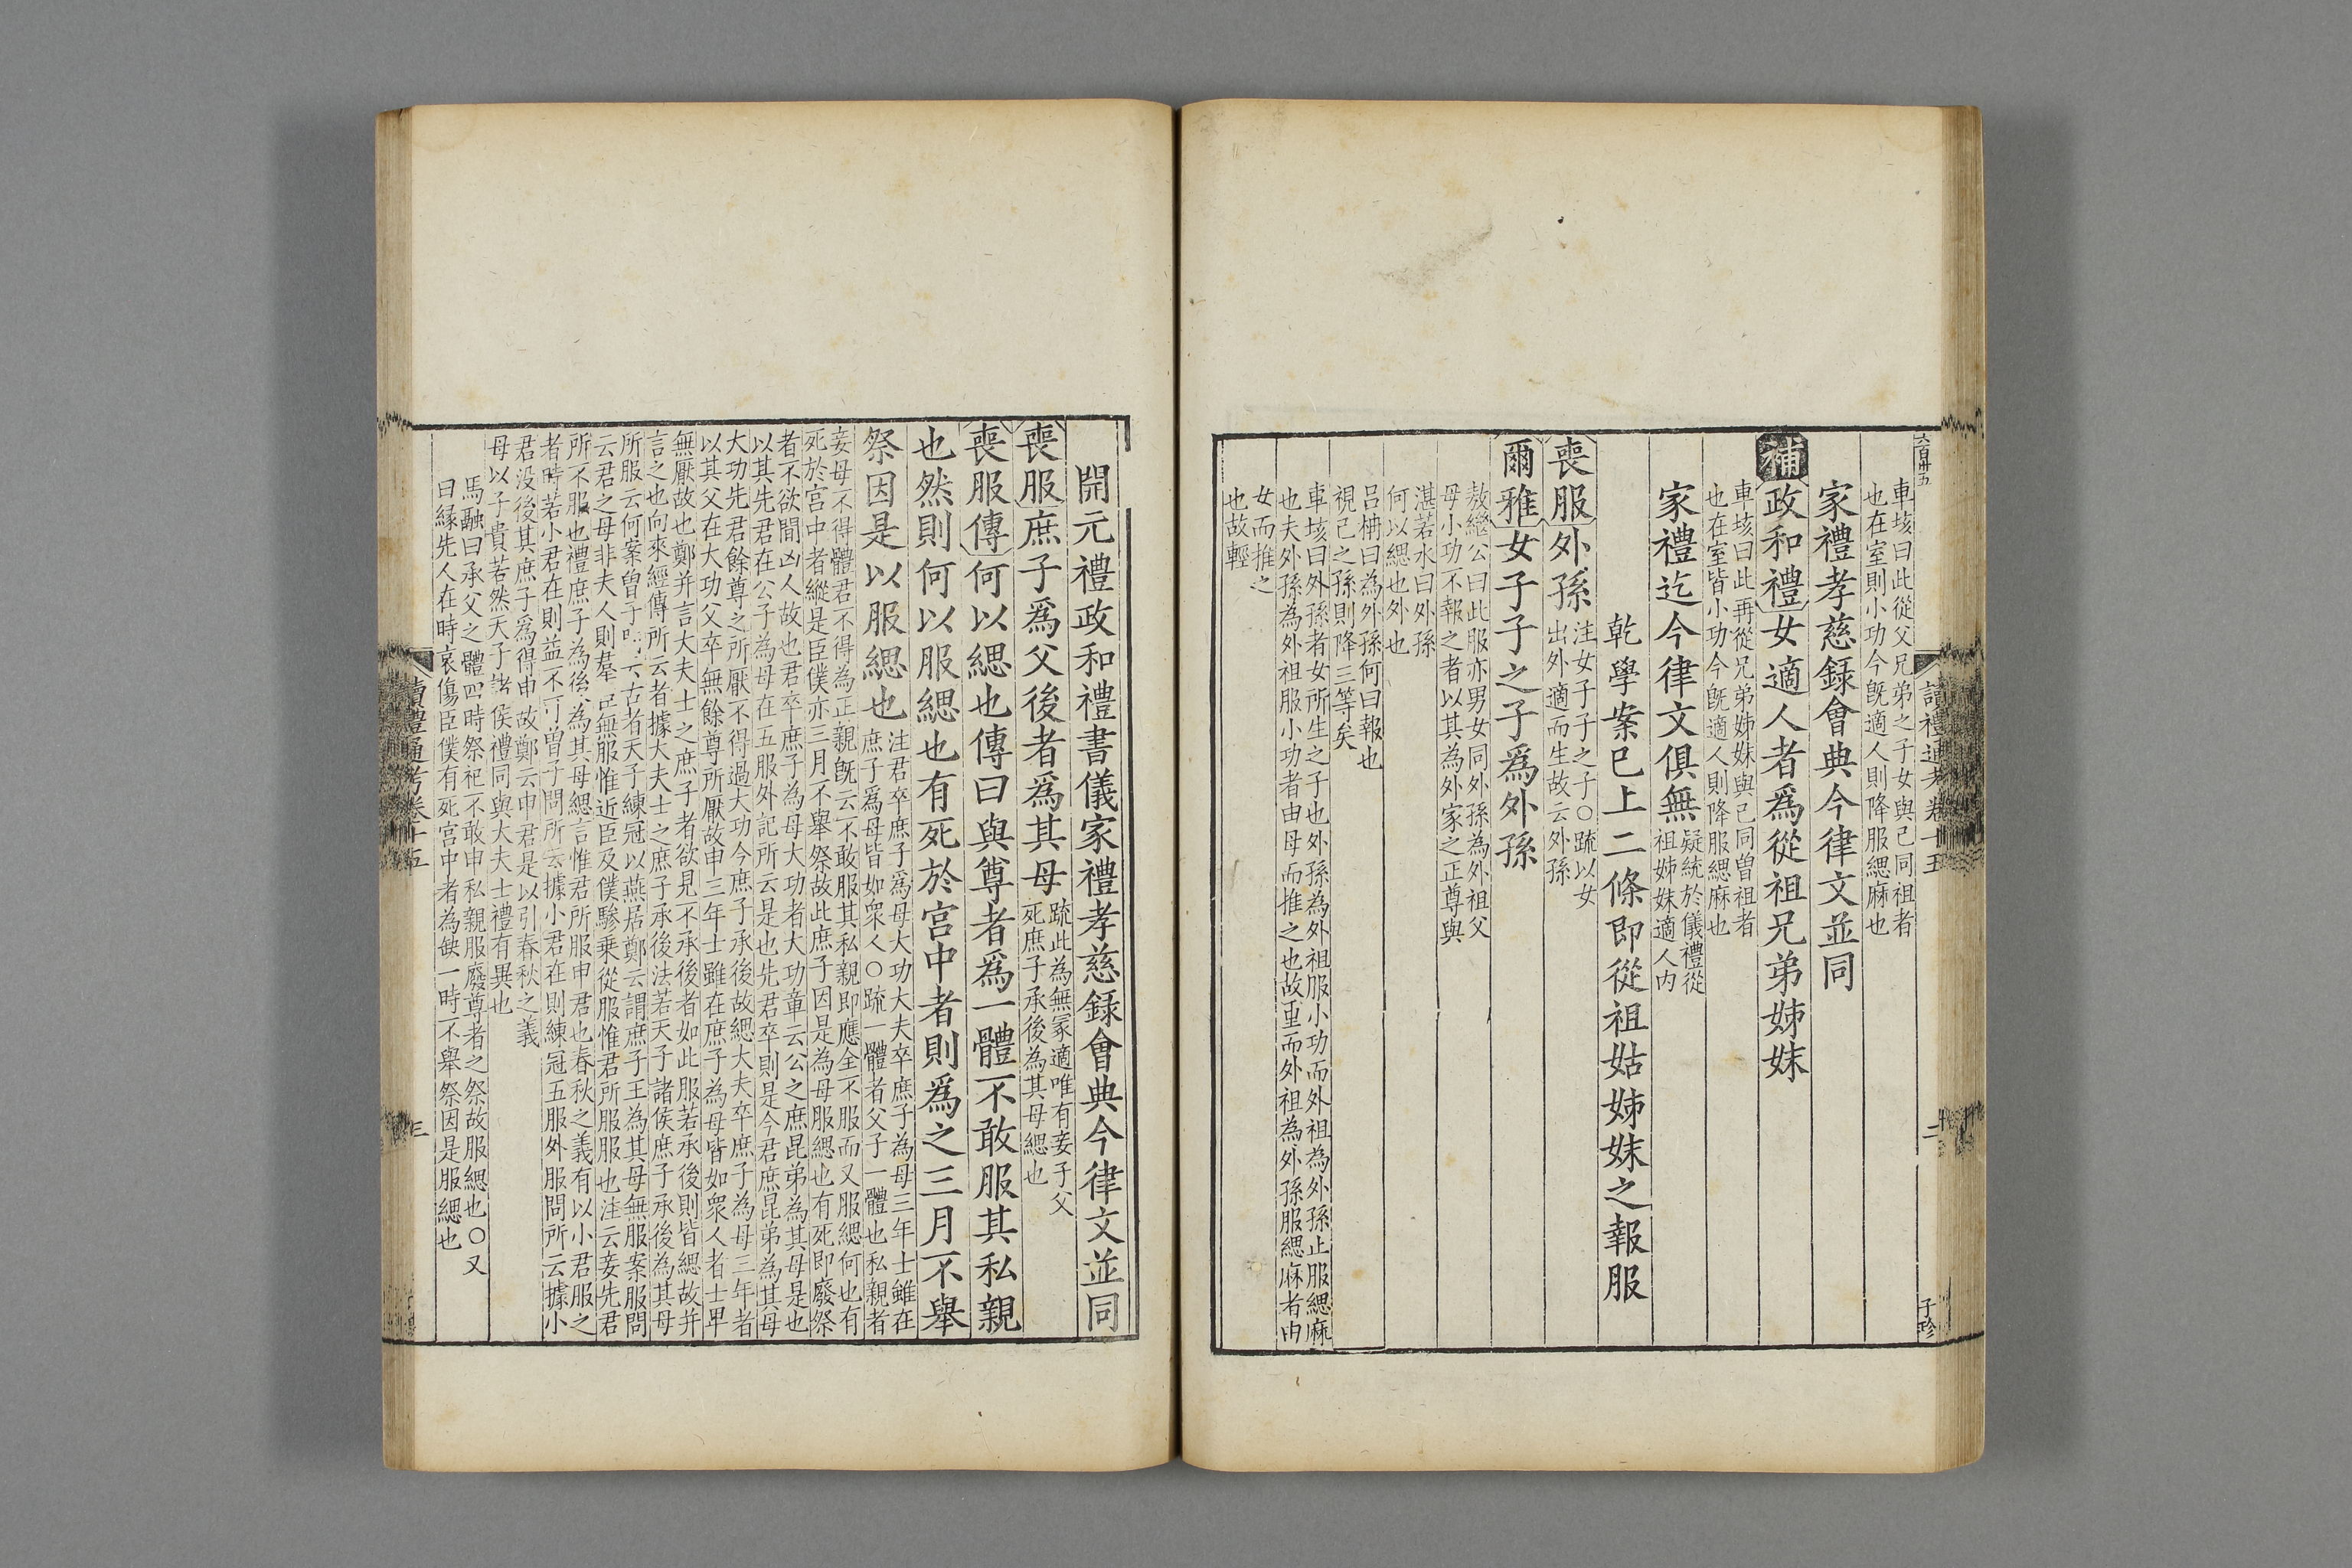 六百卅五
讀禮通考卷十五
二
子珍
車垓曰此從父兄弟之子女與己同祖者
也在室則小功今既適人則降服緦麻也
家禮孝慈錄會典今律文並同
補政和禮女適人者爲從祖兄弟姊妹
車垓曰此再從兄弟姊妹與己同曾祖者
也在室皆小功今既適人則降服緦麻也
家禮迄今律文俱無疑統於儀禮從
祖姊妹適人內
乾學案已上二條即從祖姑姊妹之報服
喪服外孫注女子子之子○疏以女
出外適而生故云外孫
爾雅女子子之子爲外孫
敖繼公曰此服亦男女同外孫為外祖父
母小功不報之者以其為外家之正尊與
湛若水曰外孫
何以緦也外也
呂柟曰為外孫何曰報也
視己之孫則降三等矣
車垓曰外孫者女所生之子也外孫為外祖服小功而外祖為外孫止服緦麻
也夫外孫為外祖服小功者由母而推之也故重而外祖為外孫服緦麻者由
女而推之
也故輕
開元禮政和禮書儀家禮孝慈錄會典今律文並同
喪服庶子爲父後者爲其母疏此為無冢適唯有妾子父
死庶子承後為其母緦也
喪服傳何以緦也傳曰與尊者爲一體不敢服其私親
也然則何以服緦也有死於宮中者則爲之三月不舉
祭因是以服緦也注君卒庶子爲母大功大夫卒庶子為母三年士雖在
庶子爲母皆如衆人○疏一體者父子一體也私親者
妾母不得體君不得為正親既云不敢服其私親即應全不服而又服緦何也有
死於宮中者縱是臣僕亦三月不舉祭故此庶子因是為母服緦也有死即廢祭
者不欲聞凶人故也君卒庶子為母大功者大功章云公之庶昆弟為其母是也
以其先君在公子為母在五服外記所云是也先君卒則是今君庶昆弟為其母
大功先君餘尊之所厭不得過大功今庶子承後故緦大夫卒庶子為母三年者
以其父在大功父卒無餘尊所厭故申三年士雖在庶子為母皆如衆人者士卑
無厭故也鄭并言大夫士之庶子者欲見不承後者如此服若承後則皆緦故并
言之也向來經傳所云者據大夫士之庶子承後法若天子諸侯庶子承後為其母
所服云何案曾子云古者天子練冠以燕居鄭云謂庶子王為其母無服案服問
云君之母非夫人則羣臣無服惟近臣及僕驂乘從服惟君所服服也注云妾先君
所不服也禮庶子為後為其母緦言惟君所服申君也春秋之義有以小君服之
者時若小君在則益不可曾子問所云據小君在則練冠五服外服問所云據小
君没後其庶子爲得申故鄭云申君是以引春秋之義
母以子貴若然天子諸侯禮同與大夫士禮有異也
馬融曰承父之體四時祭祀不敢申私親服廢尊者之祭故服緦也○又
曰緣先人在時哀傷臣僕有死宮中者為缺一時不舉祭因是服緦也
讀禮通考卷十五
三